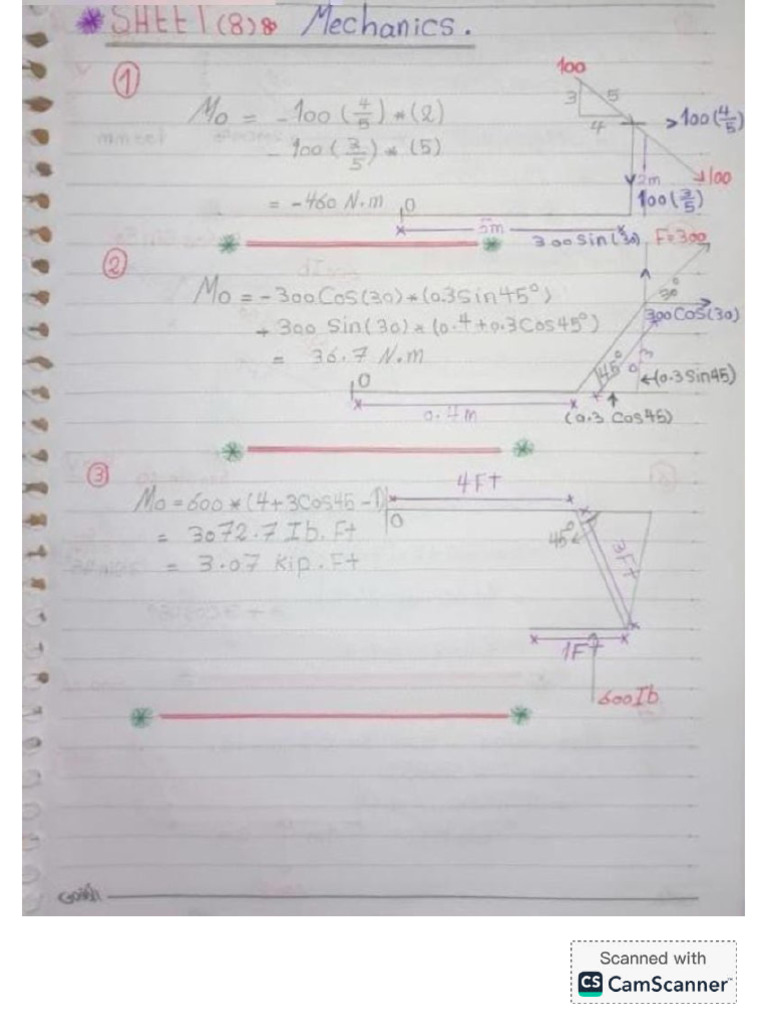 * SHEET (8) 8 Mechanics.
①
Mo = -100 (4/5) * (2)
- 100 (3/5) * (5)
= -460 N.m
100
3 5
4
>100(4/5)
2m
100
100(3/5)
O
5m
②
300 Sin(30) F=300
Mo = -300 Cos(30) * (0.3 Sin 45°)
+ 300 Sin(30) * (0.4 + 0.3 Cos 45°)
= 36.7 N.m
30°
300 Cos(30)
45° 0.3
←(0.3 Sin 45)
O
0.4m
(0.3 Cos 45)
③
Mo = 600 * (4 + 3 Cos 45 - 1)
= 3072.7 Ib.Ft
= 3.07 Kip.Ft
4 Ft
O
45°
3Ft
1Ft
600 Ib
Scanned with
CS CamScanner